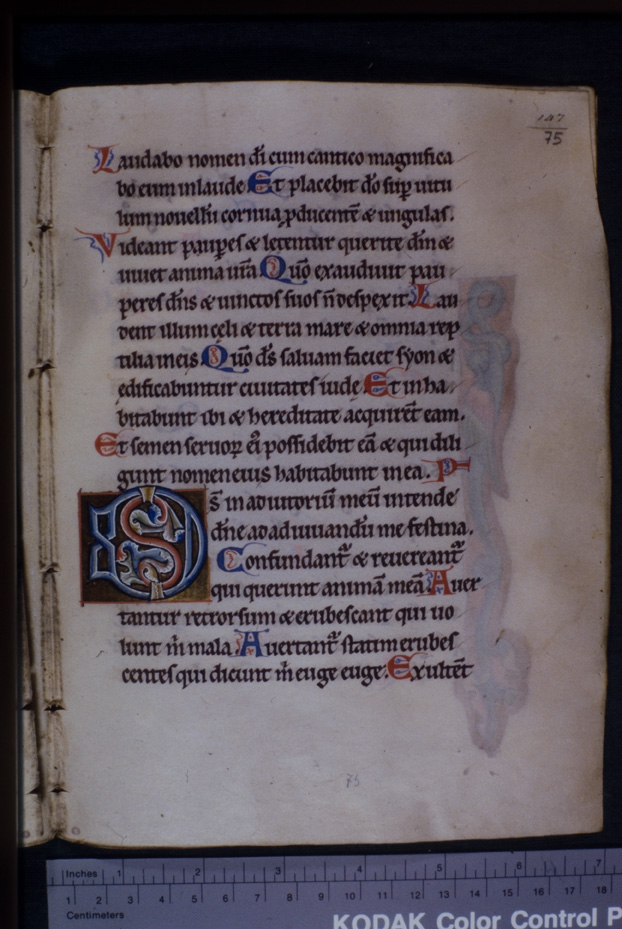 147
75
Laudabo nomen di̅ cum cantico magnifica
bo eum in laude Et placebit dō sup̅ uitu
lum nouellū cornua ꝓducentē & ungulas.
Videant paup̅es & letentur querite dn̅m &
uiuet anima ur̅a Quō exaudiuit pau
peres dn̅s & uinctos suos n̅ despexit. Lau
dent illum celi & terra mare & omnia rep
tilia in eis Quō ds̅ saluam faciet syon &
edificabuntur ciuitates iude Et inha
bitabunt ibi & hereditate acquirēt eam.
Et semen seruoꝝ ei̅ possidebit eā & qui dili
gunt nomen eius habitabunt in ea. Ps
DS in adiutoriū meū intende
dn̅e ad adiuuandū me festina.
Confundant̅ & reuereant̅
qui querunt animā meā Auer
tantur retrorsum & erubescant qui uo
lunt m̅ mala. Auertant̅ statim erubes
centes qui dicunt m̅ euge euge. Exultēt
75
Inches 1 2 3 4 5 6 7
1 2 3 4 5 6 7 8 9 10 11 12 13 14 15 16 17 18
Centimeters
KODAK Color Control P